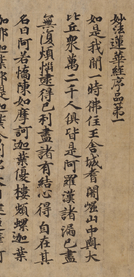 妙法蓮華經序品第一
如是我聞一時佛住王舍城耆闍崛山中與大
比丘衆萬二千人俱皆是阿羅漢諸漏已盡
無復煩惱逮得己利盡諸有結心得自在其
名曰阿若憍陳如摩訶迦葉優樓頻螺迦葉